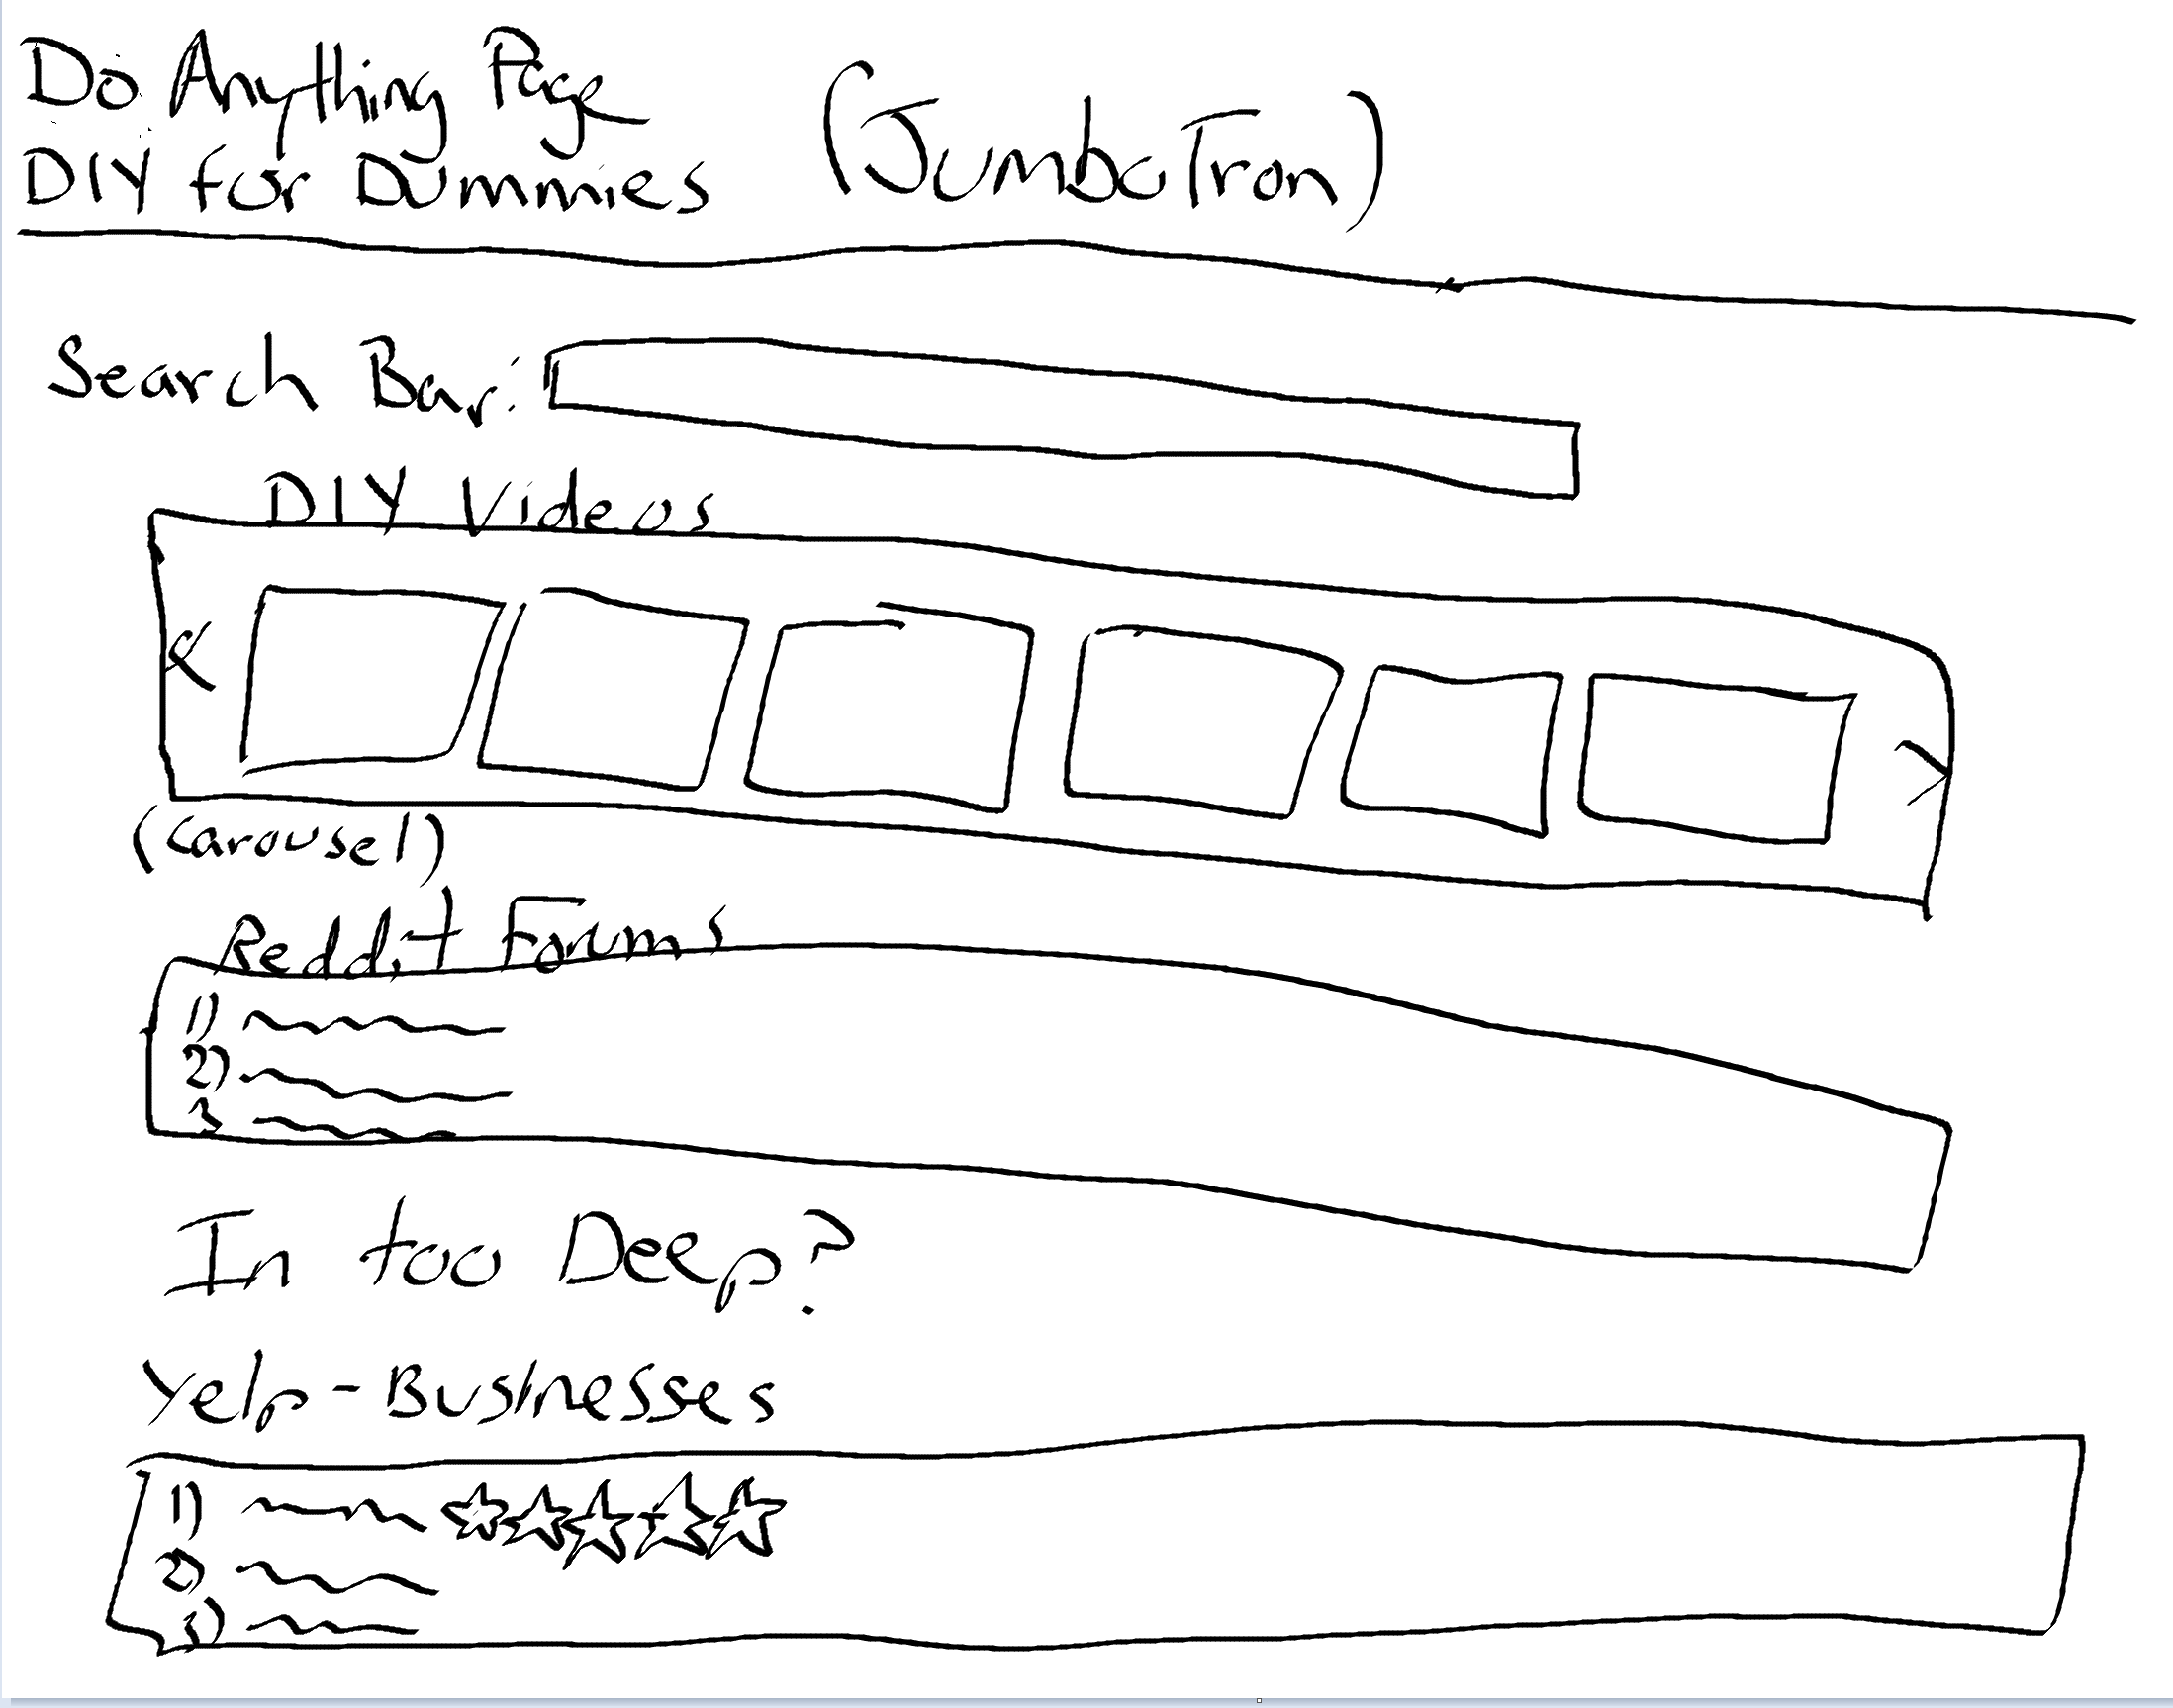 Do Anything Page
DIY for Dummies
(JumboTron)
Search Bar:
DIY Videos
<
>
(Carousel)
Reddit Forums
1)
2)
3
In too Deep?
Yelp-Businesses
1)
2)
3)